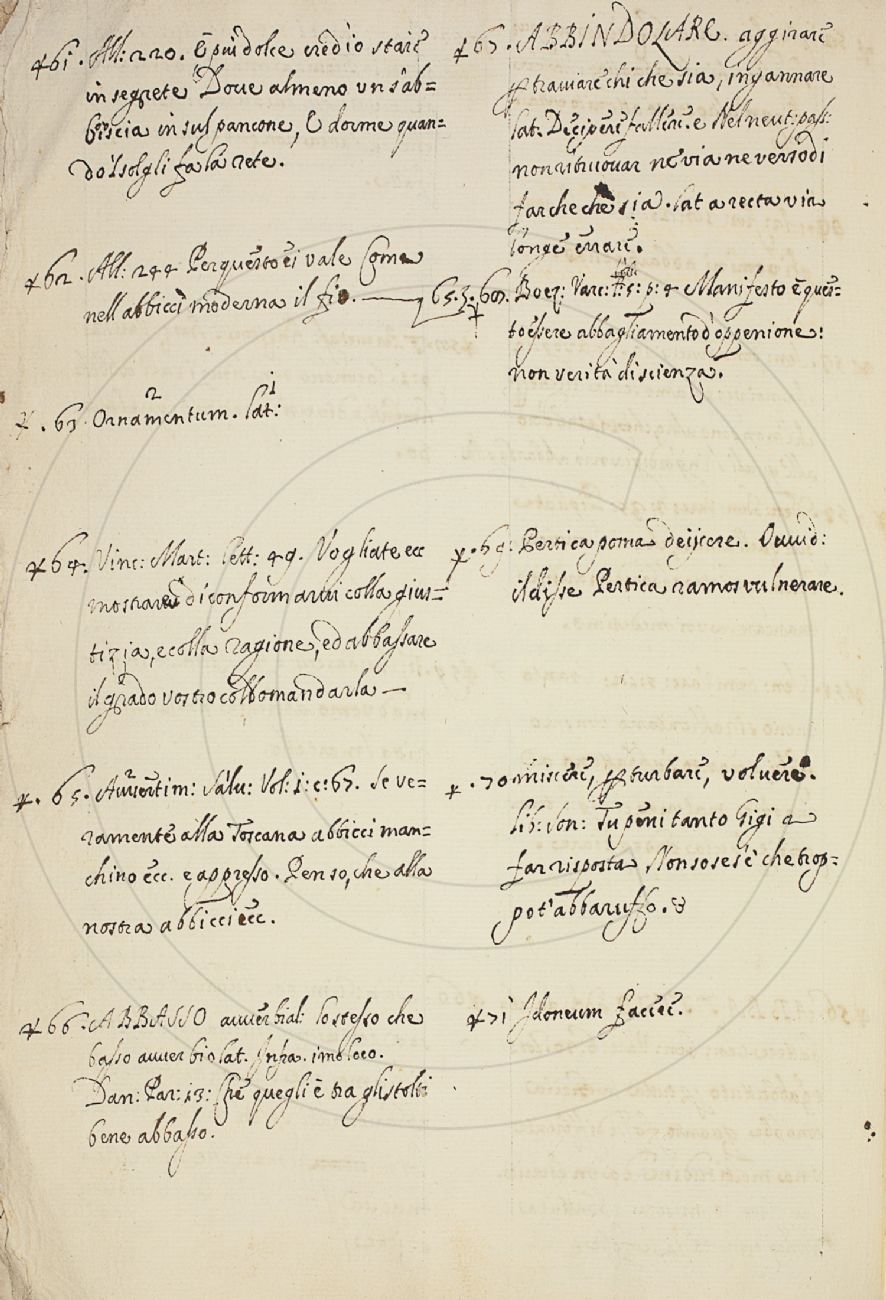 61. All: 220. È piu dolce cred'io stare
in segrete Dove almeno un s'ab=
biscia in sul pancone, E dorme quan=
do'l sol gli fa la rete.
62. All: 244 Per questo ei vale Come
nell'abbiccì moderna il fio.
63. Ornamentum. lat:
2 1
64. Vinc: Mart: Lett: 49. Vogliate ec
mostrare di conformarvi colla gius=
tizia, e colla ragione, ed abbassare
il grado vostro col domandarla —
65. Avvertim: Salv: Vol: 1: c: 67. Se ve=
ramente alla Toscana abbiccì man=
chino ecc. e appresso. Penso, che alla
nostra abbiccì ecc.
66. ABBASSO avverbial: lo stesso che
basso avverbio lat. Infra. imo loco.
Dan: Par: 13: Che quegli è tra gli stolti
bene abbasso.
67. ABBINDOLARE. aggirare
p traviare chi che sia, ingannare
lat. Decipere fallere. e Nel neut: pass:
non ritruovar ne via ne verso di
far che che sia. lat a recta via
longe errare.
65.3. 68. Boez: Varc: 5: p: 4 Manifesto è ques=
to essere abbagliamento d'oppenione:
non verità di scienza.
69: Pertica poma deijcere. Ovvid:
il disse Pertica ramos vulnerare.
70 miscere, pturbare, volvere.
lib: son: Tu peni tanto Gigi a
far risposta Non so se s'è che trop=
po t'abbaruffo.
71 Idoneum facere.